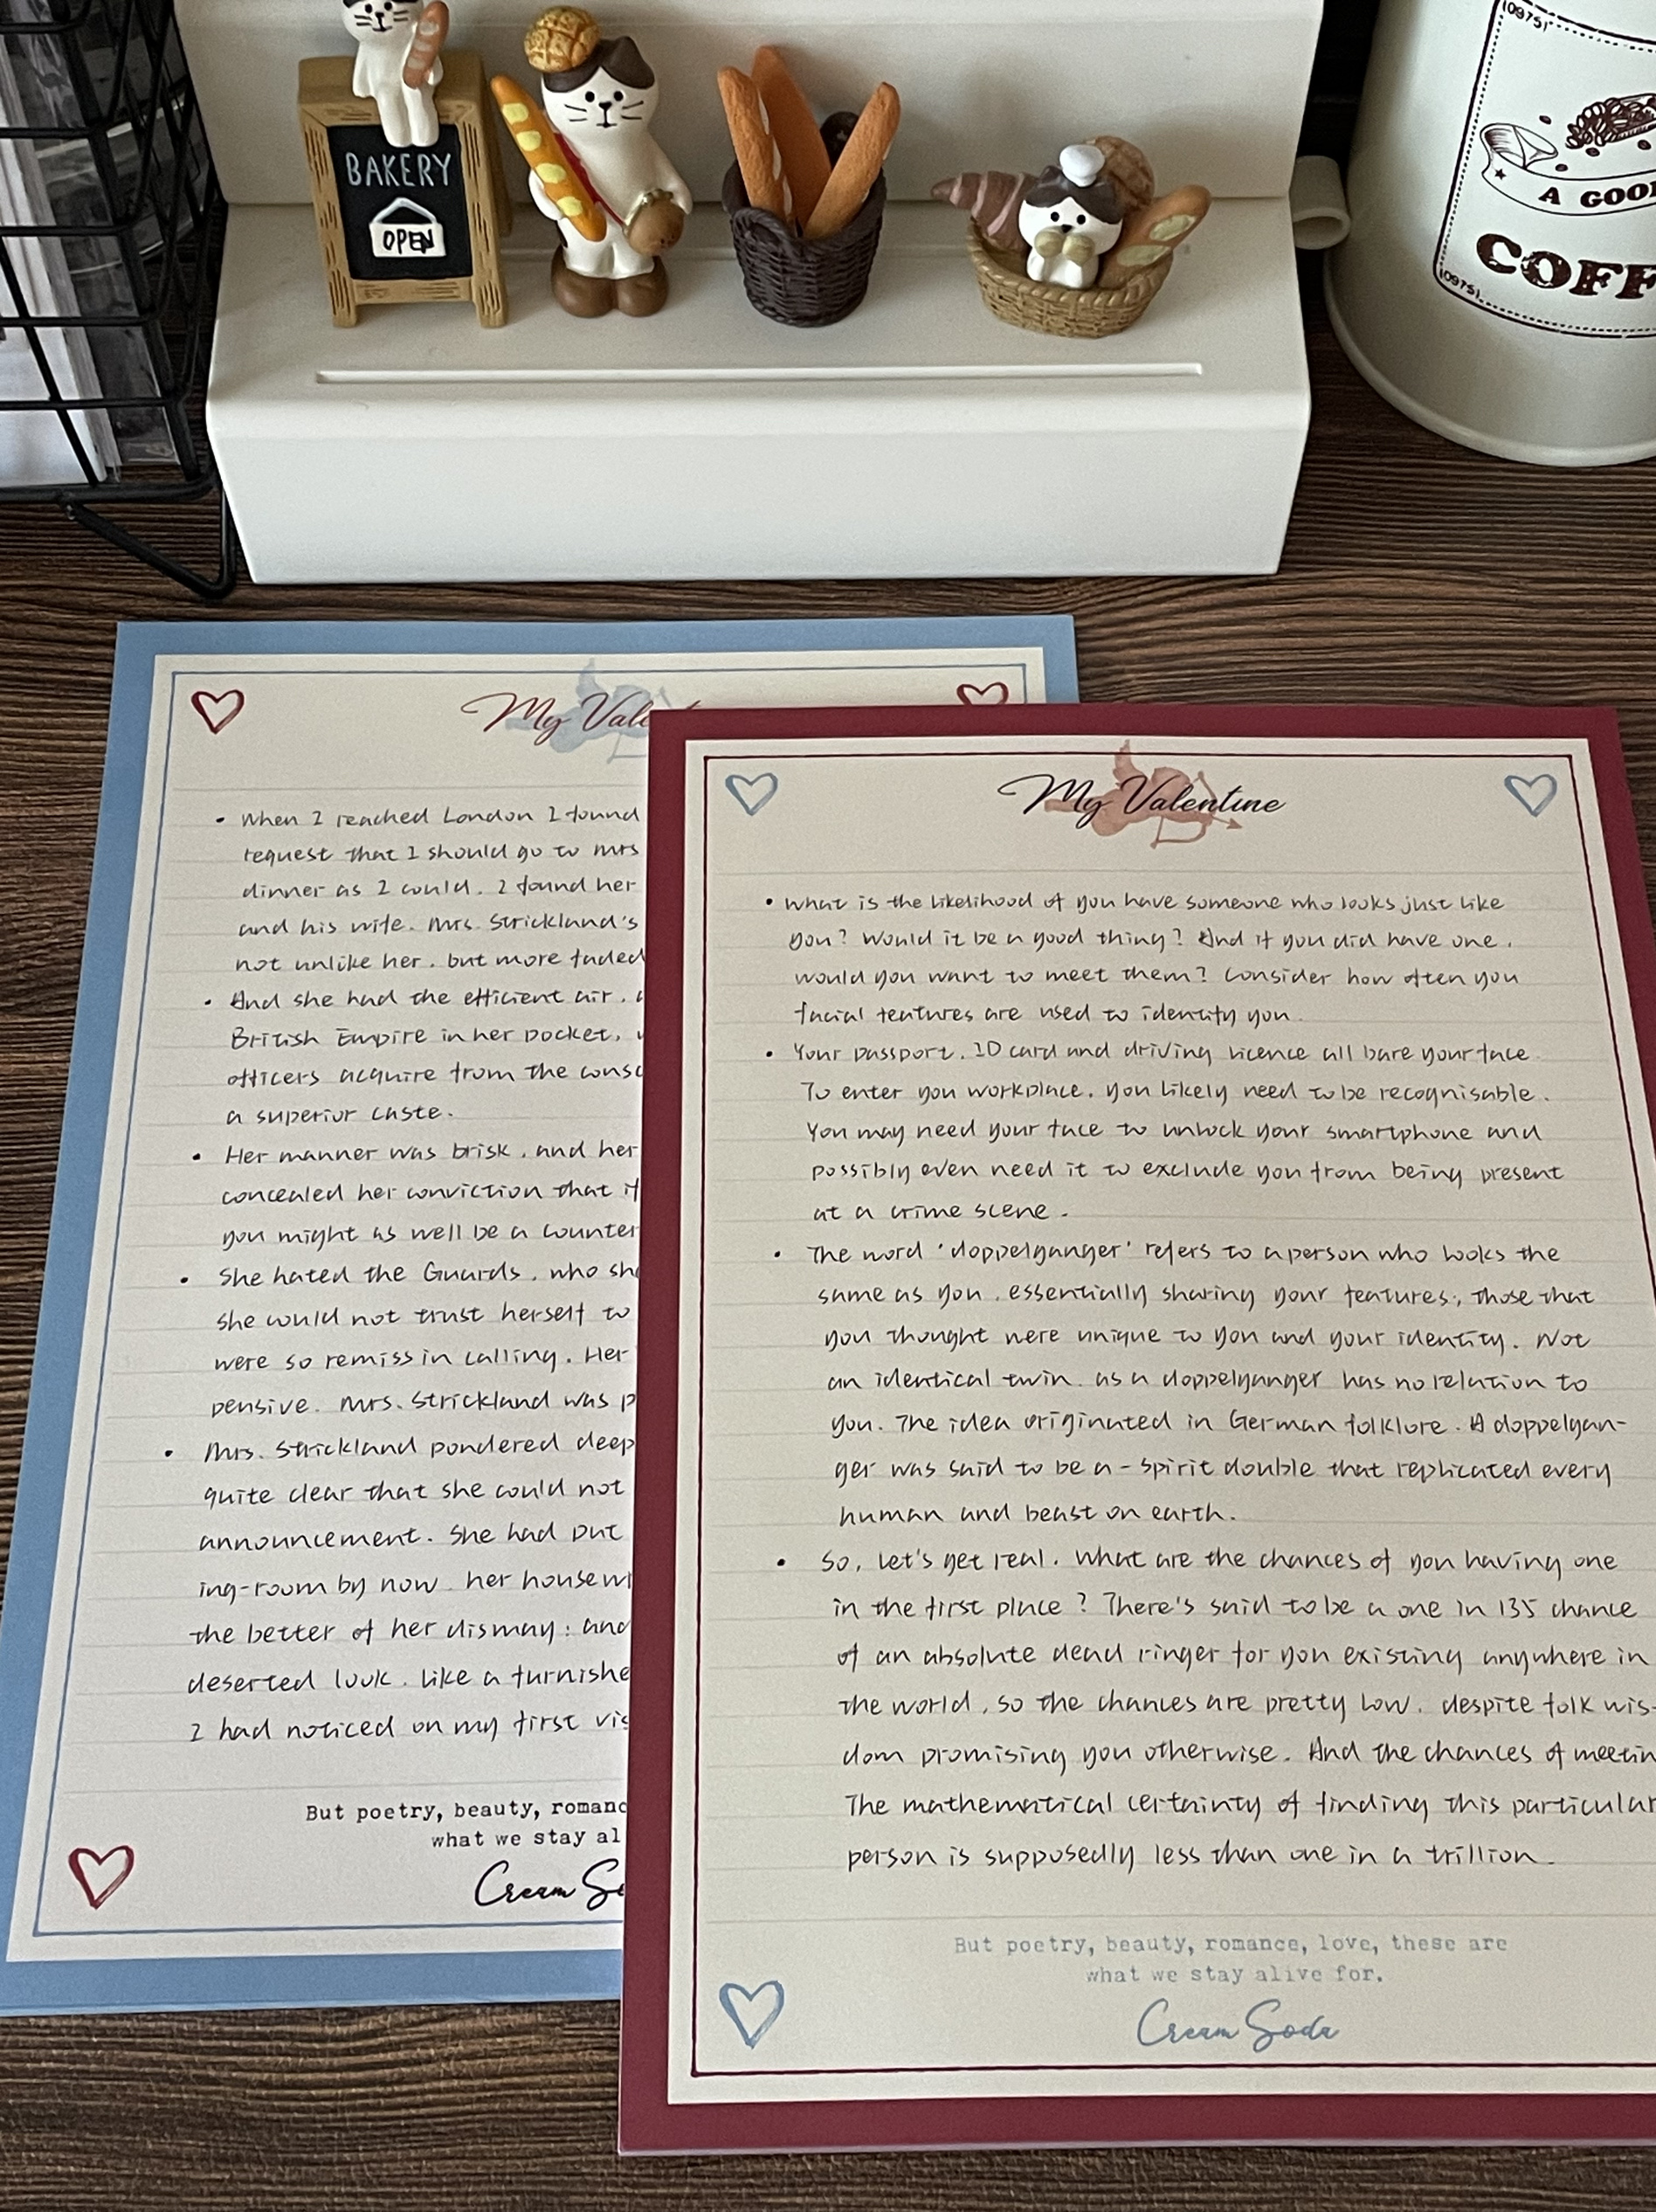 BAKERY
OPEN
(09751
A GOO
COFF
(09751
My Vale
When I reached London I found
request that I should go to Mrs
dinner as I could. I found her
and his wife. Mrs. Strickland's
not unlike her, but more faded
And she had the efficient air,
British Empire in her pocket,
officers acquire from the consc
a superior caste.
Her manner was brisk, and her
concealed her conviction that if
you might as well be a counter
She hated the Guards, who sh
she could not trust herself to
were so remiss in calling. Her
pensive. Mrs. Strickland was p
Mrs. Strickland pondered deep
quite clear that she could not
announcement. She had put
ing-room by now. her housewi
the better of her dismay: and
deserted look, like a furnishe
I had noticed on my first vis
But poetry, beauty, romanc
what we stay al
Cream So
My Valentine
What is the likelihood of you have someone who looks just like
you? Would it be a good thing? And if you did have one,
would you want to meet them? Consider how often you
facial features are used to identify you.
Your passport, ID card and driving licence all bare your face.
To enter you workplace, you likely need to be recognisable.
You may need your face to unlock your smartphone and
possibly even need it to exclude you from being present
at a crime scene.
The word 'doppelganger' refers to a person who looks the
same as you, essentially sharing your features, those that
you thought were unique to you and your identity. Not
an identical twin, as a doppelganger has no relation to
you. The idea originated in German folklore. A doppelgan-
ger was said to be a-spirit double that replicated every
human and beast on earth.
So, let's get real. What are the chances of you having one
in the first place? There's said to be a one in 135 chance
of an absolute dead ringer for you existing anywhere in
the world, so the chances are pretty low, despite folk wis-
dom promising you otherwise. And the chances of meetin
The mathematical certainty of finding this particular
person is supposedly less than one in a trillion.
But poetry, beauty, romance, love, these are
what we stay alive for.
Cream Soda